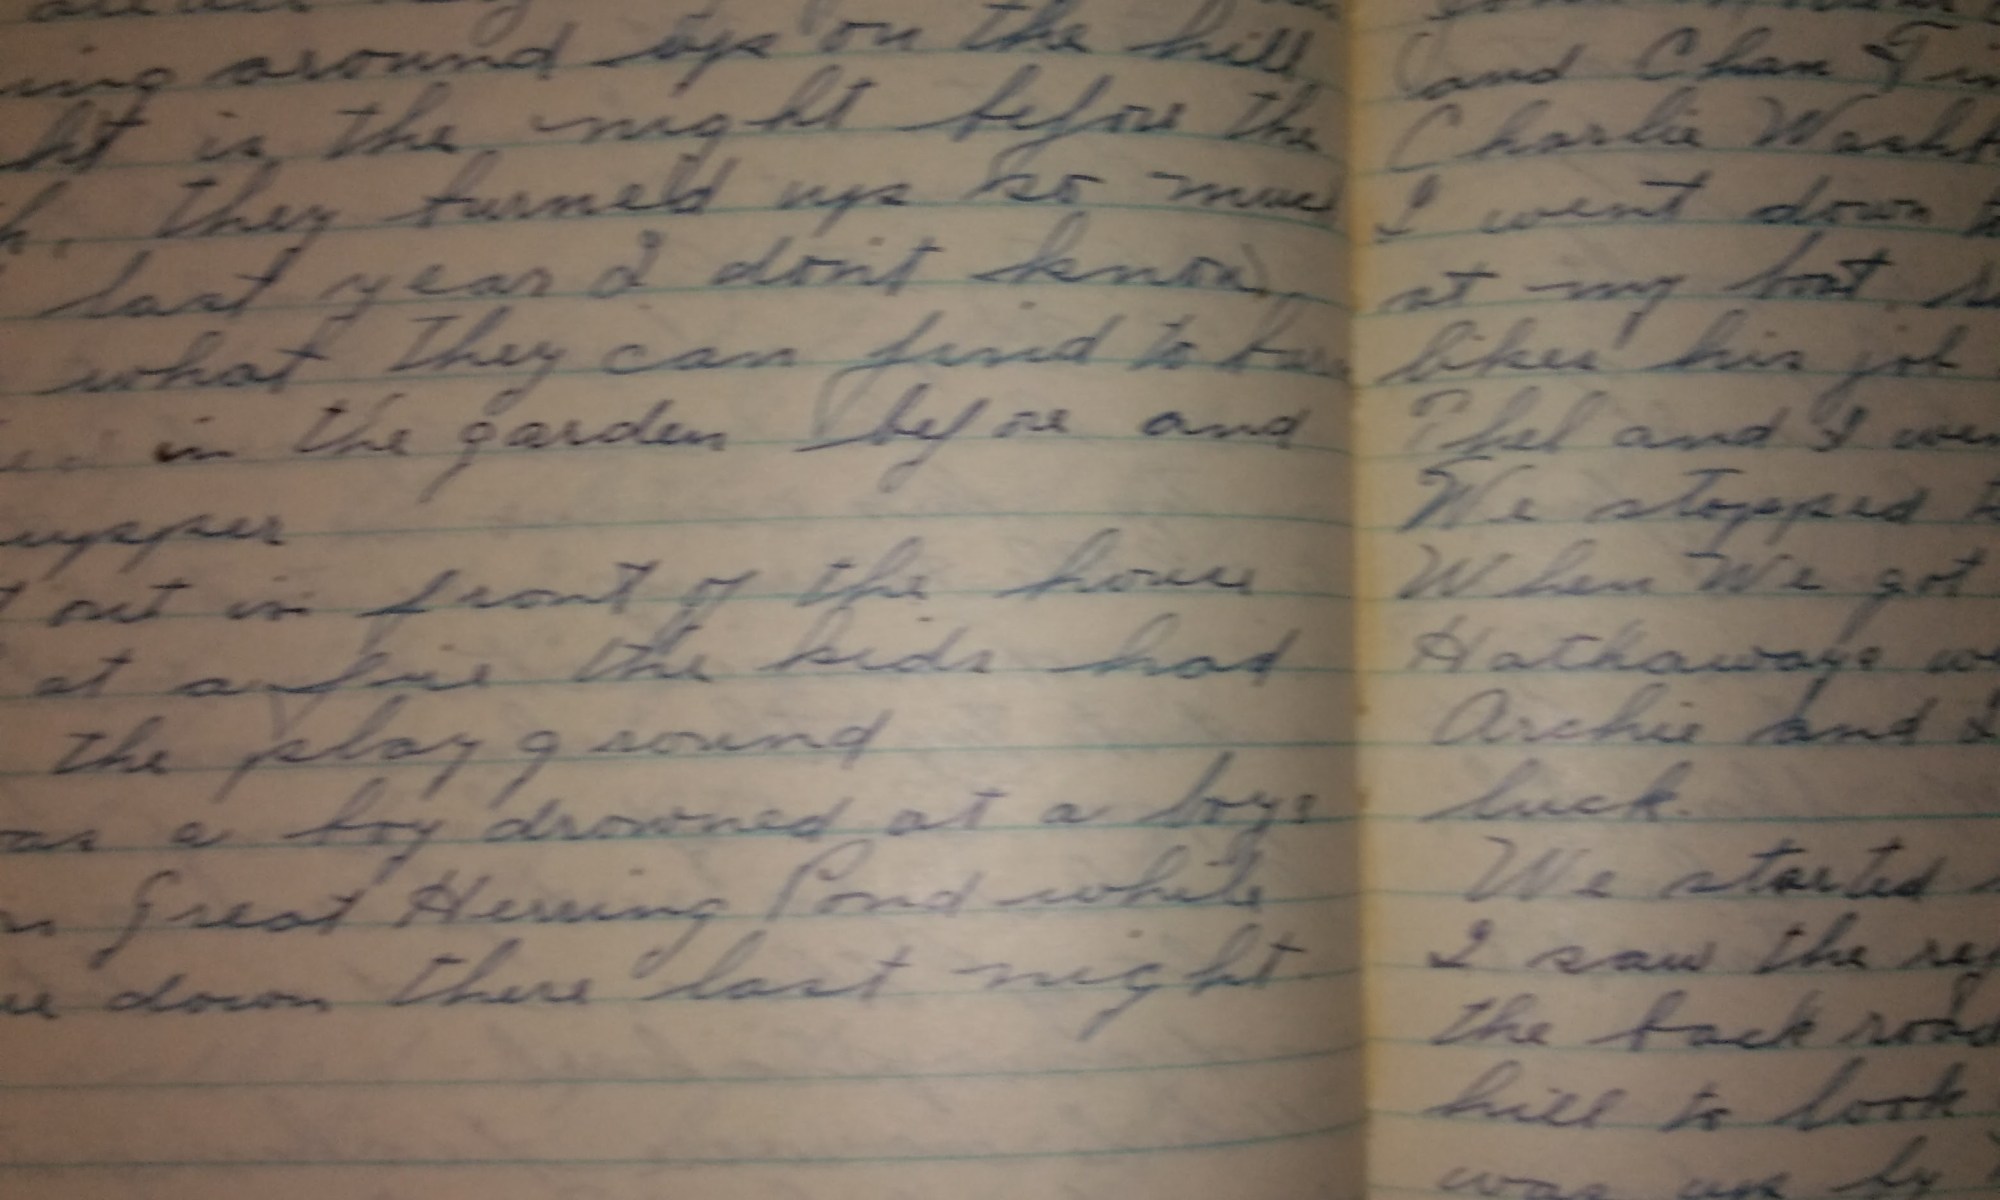 ing around up on the hill
ht is the night before the
h. they turned up so much
last year I don't know
what they can find to burn
in the garden before and
upper
out in front of the house
at a fire the kids had
the playground
as a boy drowned at a boys
Great Herring Pond while
down there last night
and Chan Tin
Charlie Washb
I went down to
at my boat
likes his job
Phel and I wen
We stopped t
When We got
Hathaways we
Archie and I
luck.
We started
I saw the re
the back road
hill to look
was up by